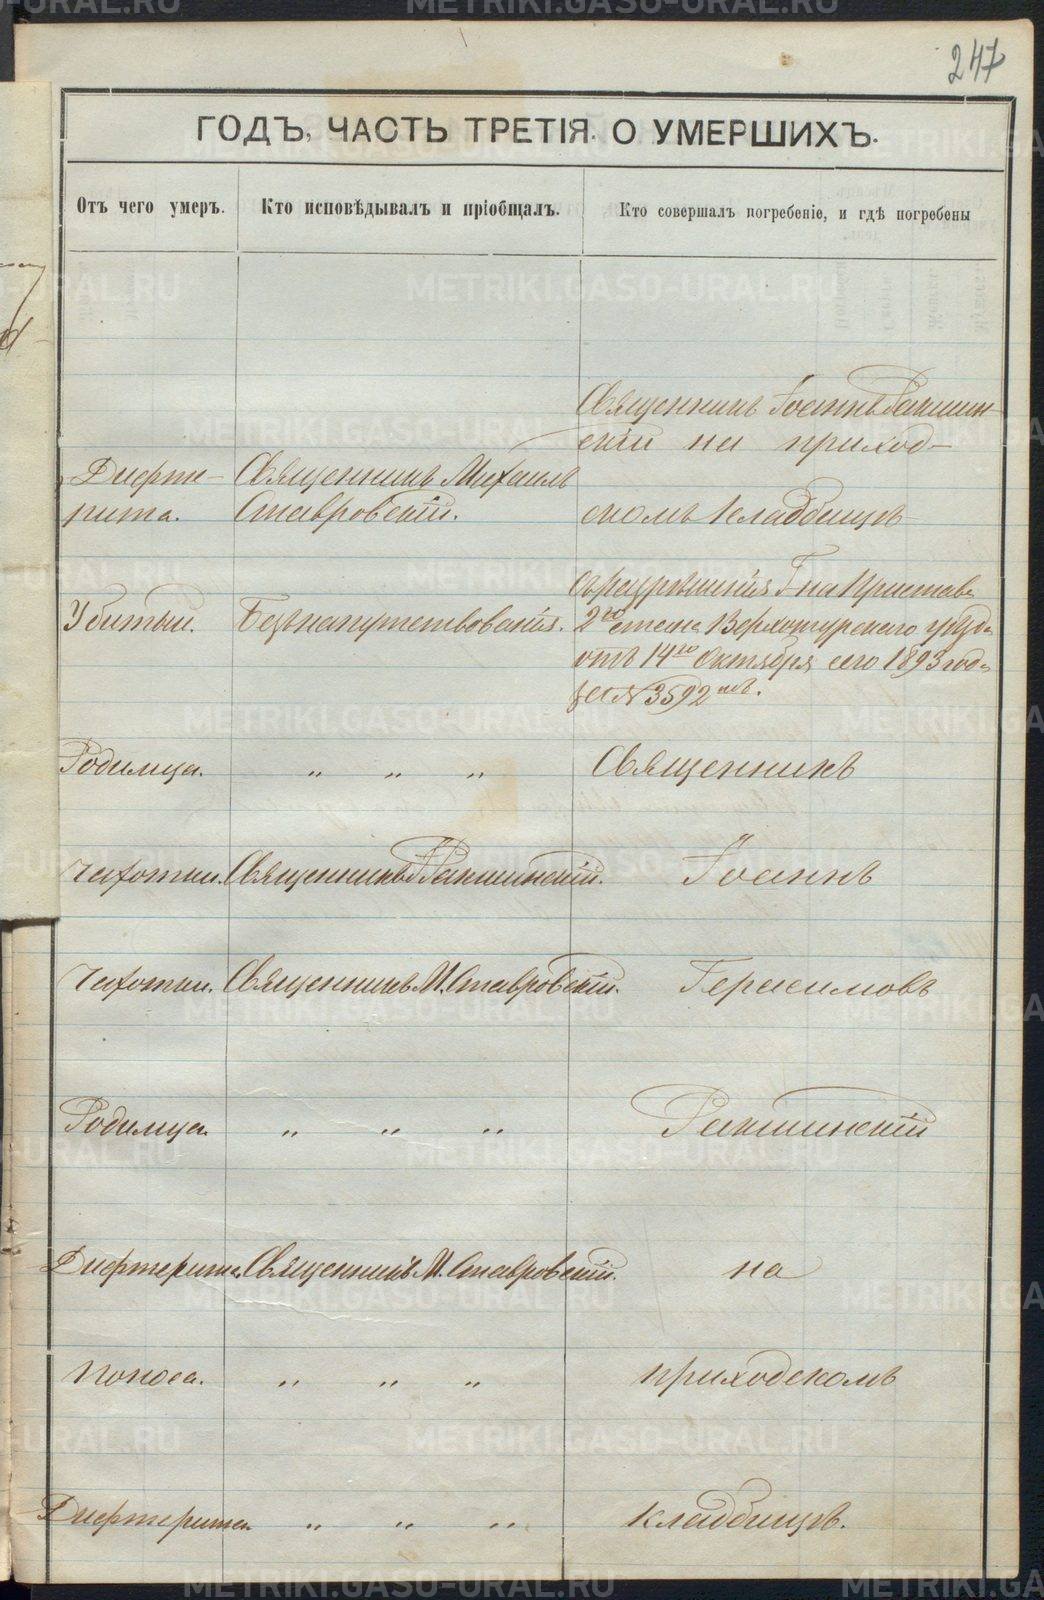 247
ГОДЪ, ЧАСТЬ ТРЕТІЯ. О УМЕРШИХЪ.
Отъ чего умеръ.
Кто исповѣдывалъ и пріобщалъ.
Кто совершалъ погребеніе, и гдѣ погребены
Священникъ Іоаннъ Ракшин-
скій на приход-
Дифте-
рита.
Священникъ Михаилъ
Ставровскій.
скомъ кладбищѣ
Убитый.
Безъ напутствованія.
Съ разрѣшенія Гна Пристава
2го стана Верхотурскаго уѣзда
отъ 14го Октября сего 1893 года
за № 3592мъ.
Родимца.
" " "
Священникъ
Чахотки.
Священникъ Ракшинскій.
Іоаннъ
Чахотки.
Священникъ М. Ставровскій.
Герасимовъ
Родимца.
" " "
Ракшинскій
Дифтерита.
Священникъ М. Ставровскій.
на
Поноса.
" " "
приходскомъ
Дифтерита.
" " "
кладбищѣ.
METRIKI.GASO-URAL.RU